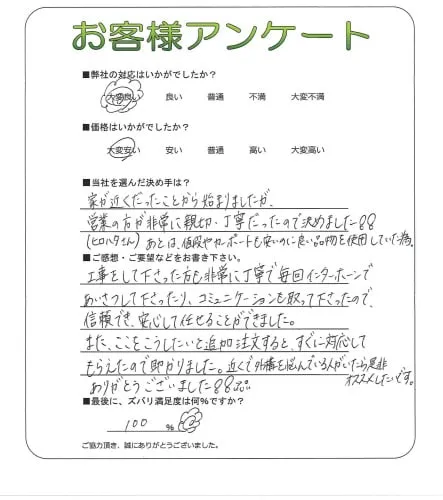 お客様アンケート
■弊社の対応はいかがでしたか?
大変良い 良い 普通 不満 大変不満
■価格はいかがでしたか?
大変安い 安い 普通 高い 大変高い
■当社を選んだ決め手は?
家が近くだったことから始まりましたが、
営業の方が非常に親切・丁寧だったので決めました
(ヒロハタさん) あとは、値段やカーポートも安いのに良い品物を使用していた為。
■ご感想・ご要望などをお書き下さい。
工事をして下さった方も非常に丁寧で毎回インターホーンで
あいさつして下さったり、コミュニケーションも取って下さったので、
信頼でき、安心して任せることができました。
また、ここをこうしたいと追加注文すると、すぐに対応して
もらえたので助かりました。近くで外構を悩んでいる人がいたら是非
オススメしたいです。
ありがとうございました
■最後に、ズバリ満足度は何%ですか?
100 %
ご協力頂き、誠にありがとうございました。